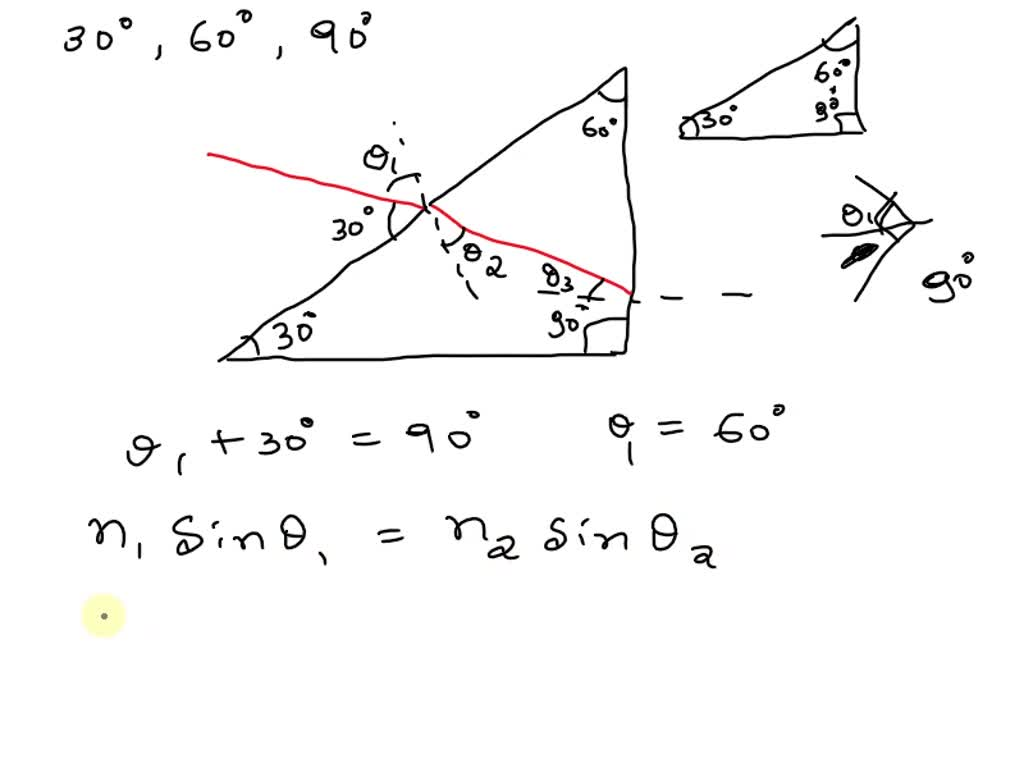 30°, 60°, 90°
60°
60°
30°
90°
θ₁
30°
θ₂
θ₃
30°
90°
θ₁
90°
θ₁ + 30° = 90°
θ₁ = 60°
n₁ sinθ₁ = n₂ sinθ₂